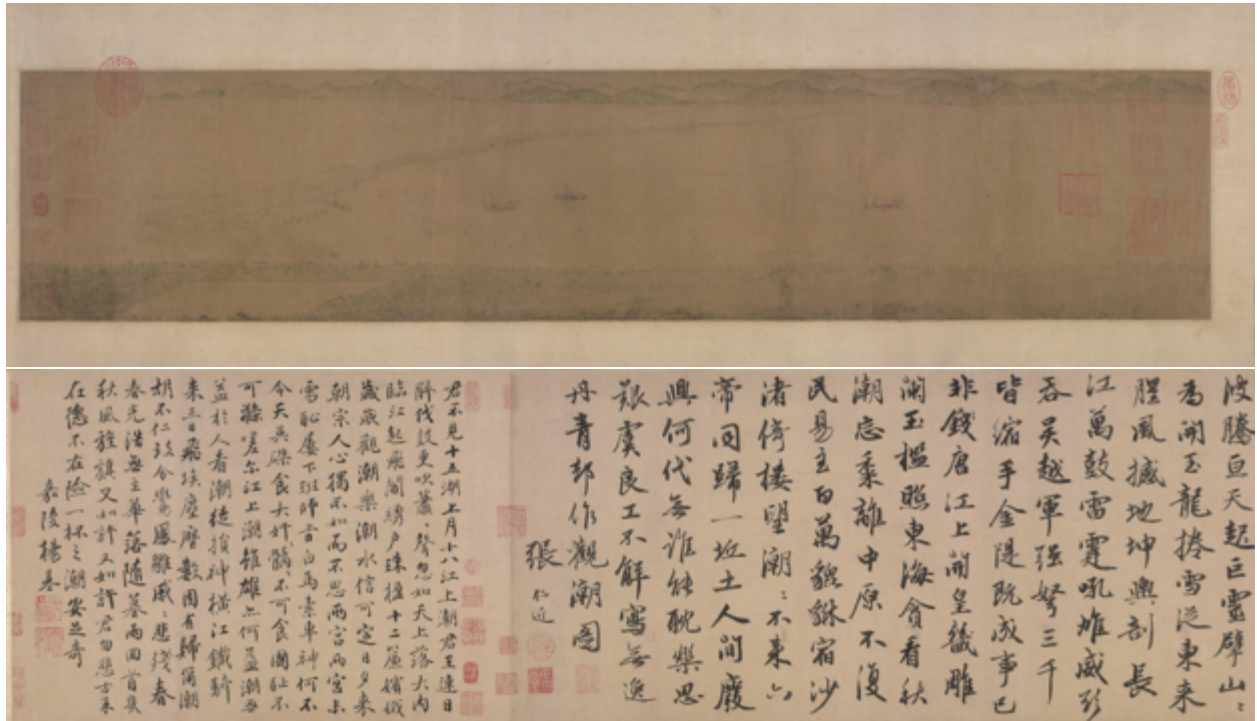 波騰亘天起巨靈擘山〻
為開玉龍捲雪從東来
腥風撼地坤輿剖長
江萬鼓雷霆吼雄威欻
吞吴越軍强弩三千
皆縮手金隄既成事已
非錢唐江上開皇畿雕
闌玉檻照東海貪看秋
潮忘黍離中原不復
民易主百萬貔貅宿沙
渚倚樓望潮〻不来六
帝同歸一丘土人間廢
興何代無誰能耽樂思
艱虞良工不解寫無逸
丹青却作觀潮圖
張仁近
君不見十五潮上月十八江上潮君王連日
酣伐鼓更吹簫〻聲忽如天上落大内
臨江起飛閣綉户珠櫳十二簾嬪娥
歲歲觀潮樂潮水信可定日夕来
朝宗人心獨不如而不思兩宫兩宫未
雪恥屢下班師旨白馬素車神何不
令天吴磔食大奸髓不可食國恥不
可滌嗟尔江上潮雖雄亦何益潮無
益於人看潮徒損神横江鐵騎
来三日飛埃塵曆數固有歸爾潮
胡不仁玆分鸞鳳雛戚〻悲殘春
春光浩無主華落隨暮雨回首
秋風旌旗又如許又如許君勿悲古来
在德不在險一杯之潮安足奇
嘉陵楊基